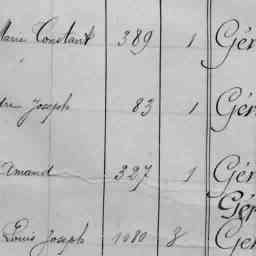 Marie Constant 389 1 Gér
dre Joseph 83 1 Gér
Amand 327 1 Gér
Gér
Louis Joseph 1080 8 Gér